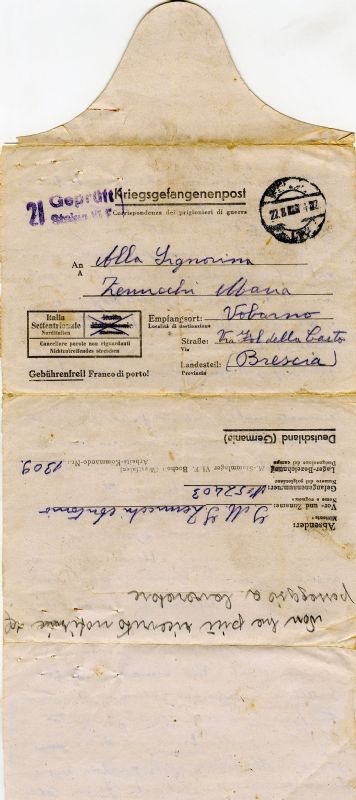 21 Geprüft
Stalag VI F
Kriegsgefangenenpost
Corrispondenza dei prigionieri di guerra
22.8 4
An
A
Alla Signorina
Zenucchi Maria
Empfangsort: Vobarno
Località di destinazione
Straße: Via
Via
Landesteil: (Brescia)
Provincia
Italia
Settentrionale
Norditalien
Cancellare parole non riguardanti
Nichtzutreffendes streichen
Gebührenfrei! Franco di porto!
Absender:
Mittente
Vor- und Zuname: Zenucchi Antonio
Nome e cognome
Gefangenennummer: N° 52403
Numero del prigioniero
Lager-Bezeichnung M.-Stammlager VI F. Bocholt (Westfalen)
Designazione del campo Arbeits-Kommando-Nr.: 1309.
Deutschland (Germania)
Non ha più ricevuto notizie
passaggio a lavoratore